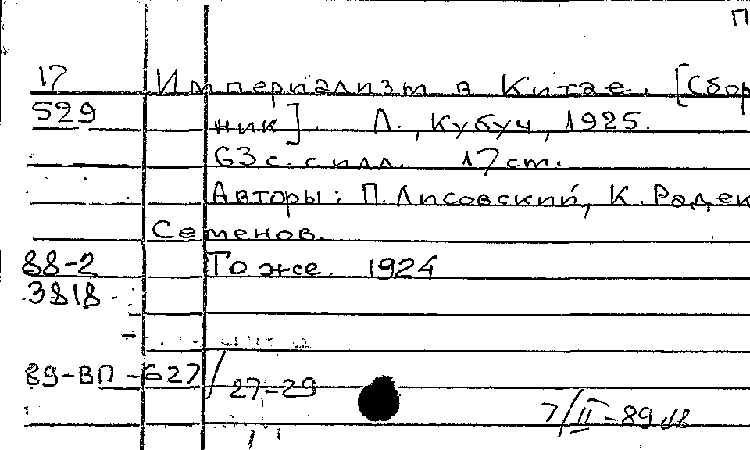 П
17 Империализм в Китае. [Сбор
529 ник]. Л., Кубуч, 1925.
63 с. с илл. 17 cm.
Авторы: П. Лисовский, К. Радек
Семенов.
88-2 То же. 1924
3818
89-ВП-627/27-29
7/II-89